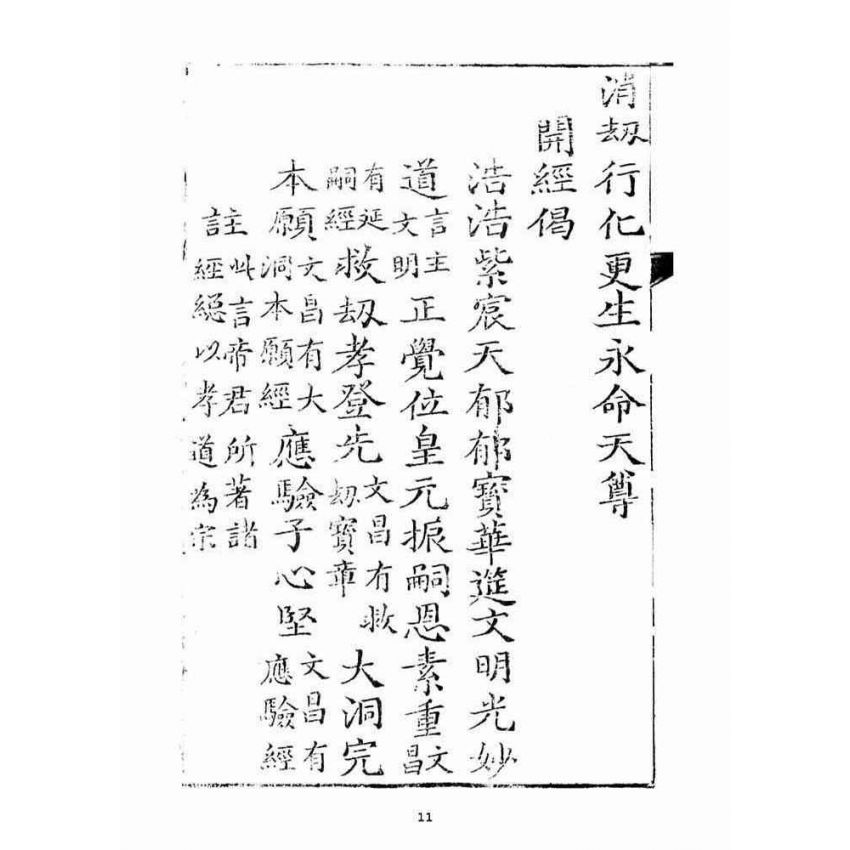 消刧行化更生永命天尊
開經偈
浩浩紫宸天郁郁寶華筵文明光妙
道言主文明正覺位皇元振嗣恩素重文昌
有延嗣經救刧孝登先文昌有救刧寶章大洞完
本願文昌有大洞本願經應驗子心堅文昌有應驗經
註此言帝君所著諸經總以孝道為宗
11